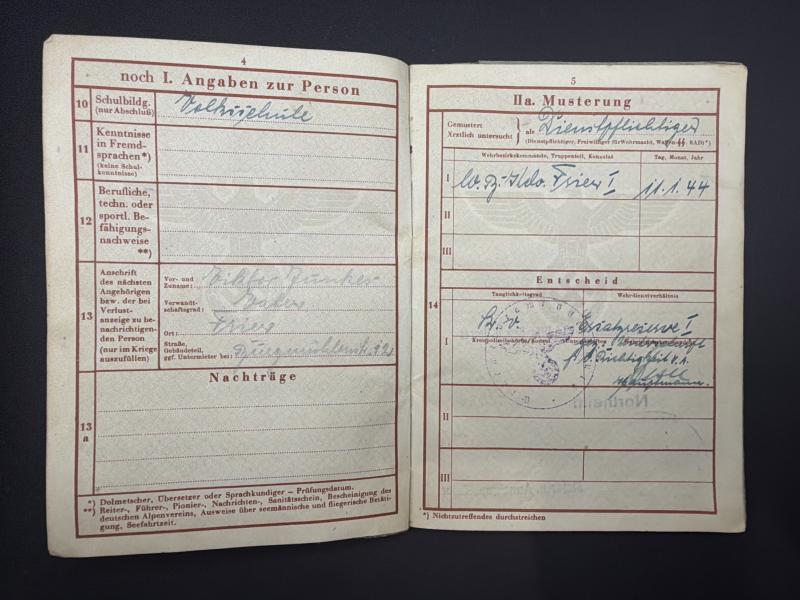 4
noch I. Angaben zur Person
10 Schulbildg. Volksschule
(nur Abschluß)
11 Kenntnisse
in Fremd-
sprachen*)
(keine Schul-
kenntnisse)
12 Berufliche,
techn. oder
sportl. Be-
fähigungs-
nachweise
**)
13 Anschrift
des nächsten
Angehörigen
bzw. der bei
Verlust-
anzeige zu be-
nachrichtigen-
den Person
(nur im Kriege
auszufüllen)
Vor- und
Zuname: Viktor Junker
Verwandt-
schaftsgrad: Vater
Ort: Trier
Straße,
Gebäudeteil,
ggf. Untermieter bei: 32
Nachträge
13
a
*) Dolmetscher, Übersetzer oder Sprachkundiger – Prüfungsdatum.
**) Reiter-, Führer-, Pionier-, Nachrichten-, Sanitätsschein, Bescheinigung des
deutschen Alpenvereins, Ausweise über seemännische und fliegerische Betäti-
gung, Seefahrtzeit.
5
IIa. Musterung
Gemustert
Ärztlich untersucht } als Dienstpflichtiger
(Dienstpflichtiger, Freiwilliger für Wehrmacht, Waffen-SS RAD)*)
Wehrbezirkskommando, Truppenteil, Konsulat Tag, Monat, Jahr
I W. Bz. Kdo. Trier I 11. 1. 44
II
III
Entscheid
14
Tauglichkeitsgrad Wehrdienstverhältnis
k. v. Ersatzreserve I
I
f. d. Richtigkeit d. A.
Hauptmann.
II
III
*) Nichtzutreffendes durchstreichen